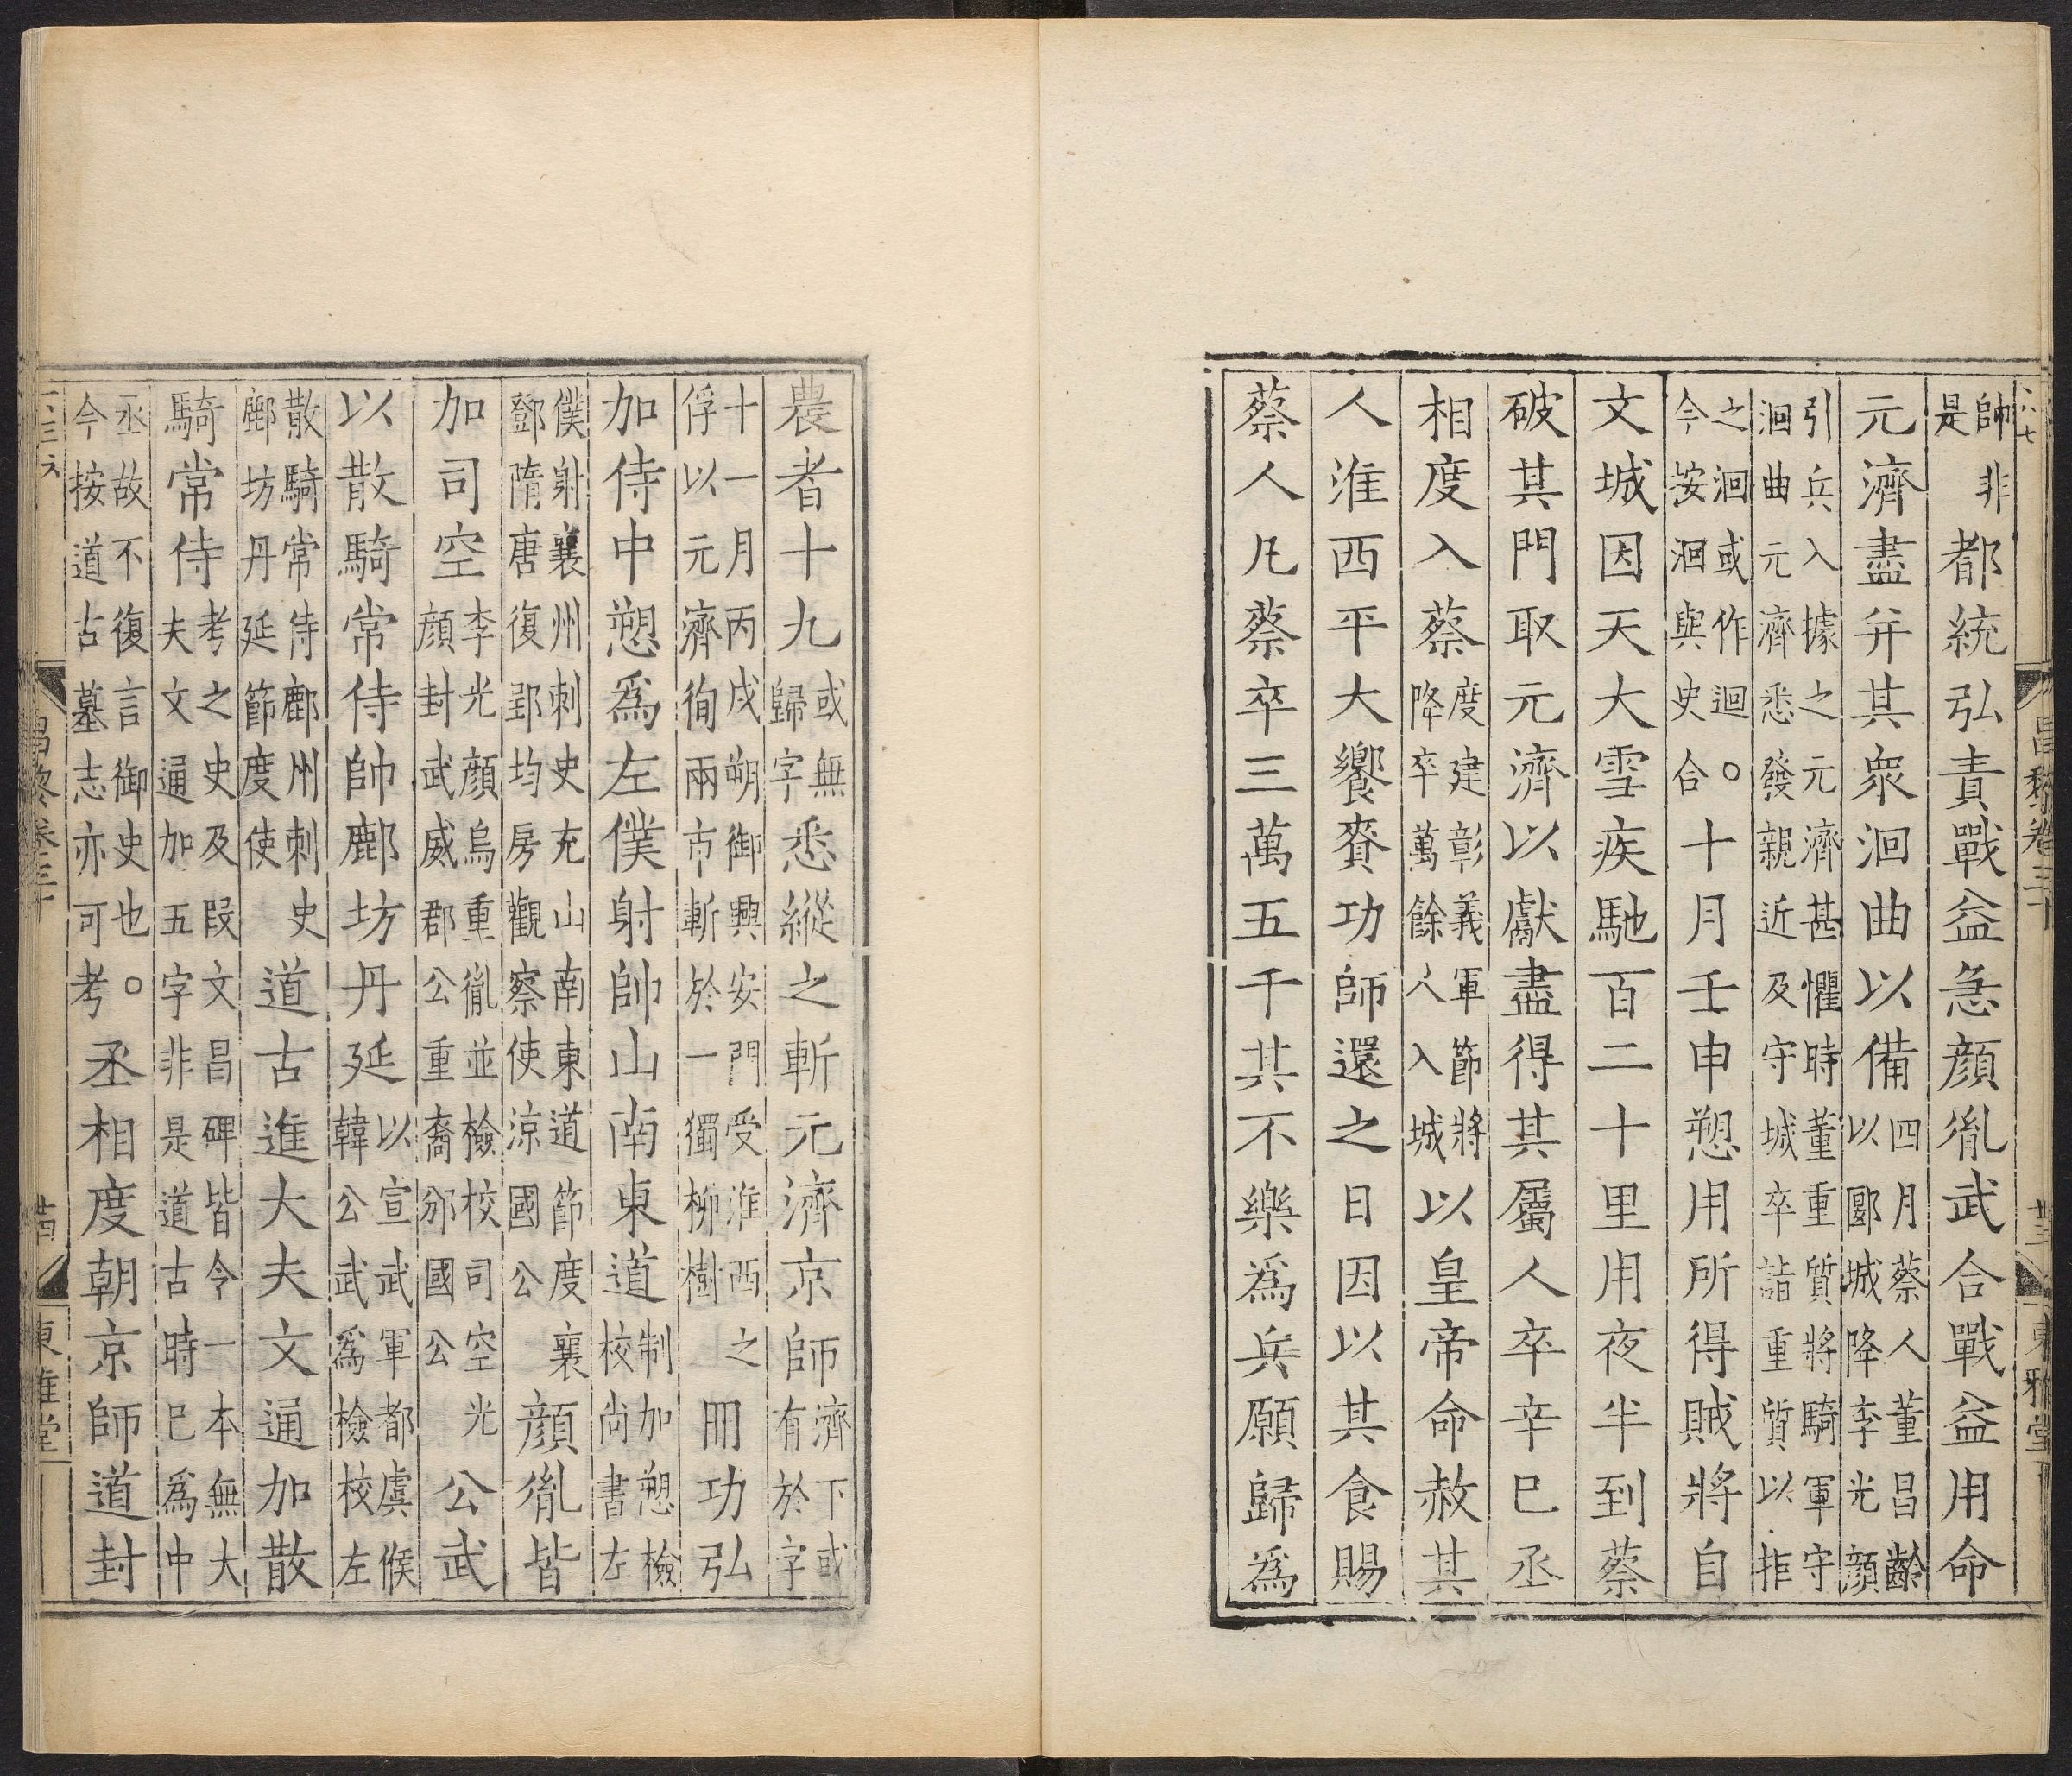 昌黎卷三十 廿三 東雅堂
帥非是都統弘責戰益急顏胤武合戰益用命
元濟盡并其衆洄曲以備四月蔡人董昌齡以郾城降李光顏
引兵入據之元濟甚懼時董重質將騎軍守洄曲元濟悉發親近及守城卒詣重質以拒
之洄或作迴○今按洄與史合十月壬申愬用所得賊將自
文城因天大雪疾馳百二十里用夜半到蔡
破其門取元濟以獻盡得其屬人卒辛巳丞
相度入蔡度建彰義軍節將降卒萬餘人入城以皇帝命赦其
人淮西平大饗賚功師還之日因以其食賜
蔡人凡蔡卒三萬五千其不樂爲兵願歸爲
農者十九或無歸字悉縱之斬元濟京師濟下或有於字
十一月丙戌朔御興安門受淮西之俘以元濟徇兩市斬於一獨柳樹冊功弘
加侍中愬爲左僕射帥山南東道制加愬檢校尚書左
僕射襄州刺史充山南東道節度襄鄧隋唐復郢均房觀察使涼國公顏胤皆
加司空李光顏烏重胤並檢校司空光顏封武威郡公重裔邠國公公武
以散騎常侍帥鄜坊丹延以宣武軍都虞候韓公武爲檢校左
散騎常侍鄜州刺史鄜坊丹延節度使道古進大夫文通加散
騎常侍考之史及段文昌碑皆今一本無大夫文通加五字非是道古時已爲中
丞故不復言御史也○今按道古墓志亦可考丞相度朝京師道封
昌黎卷三十 廿四 東雅堂